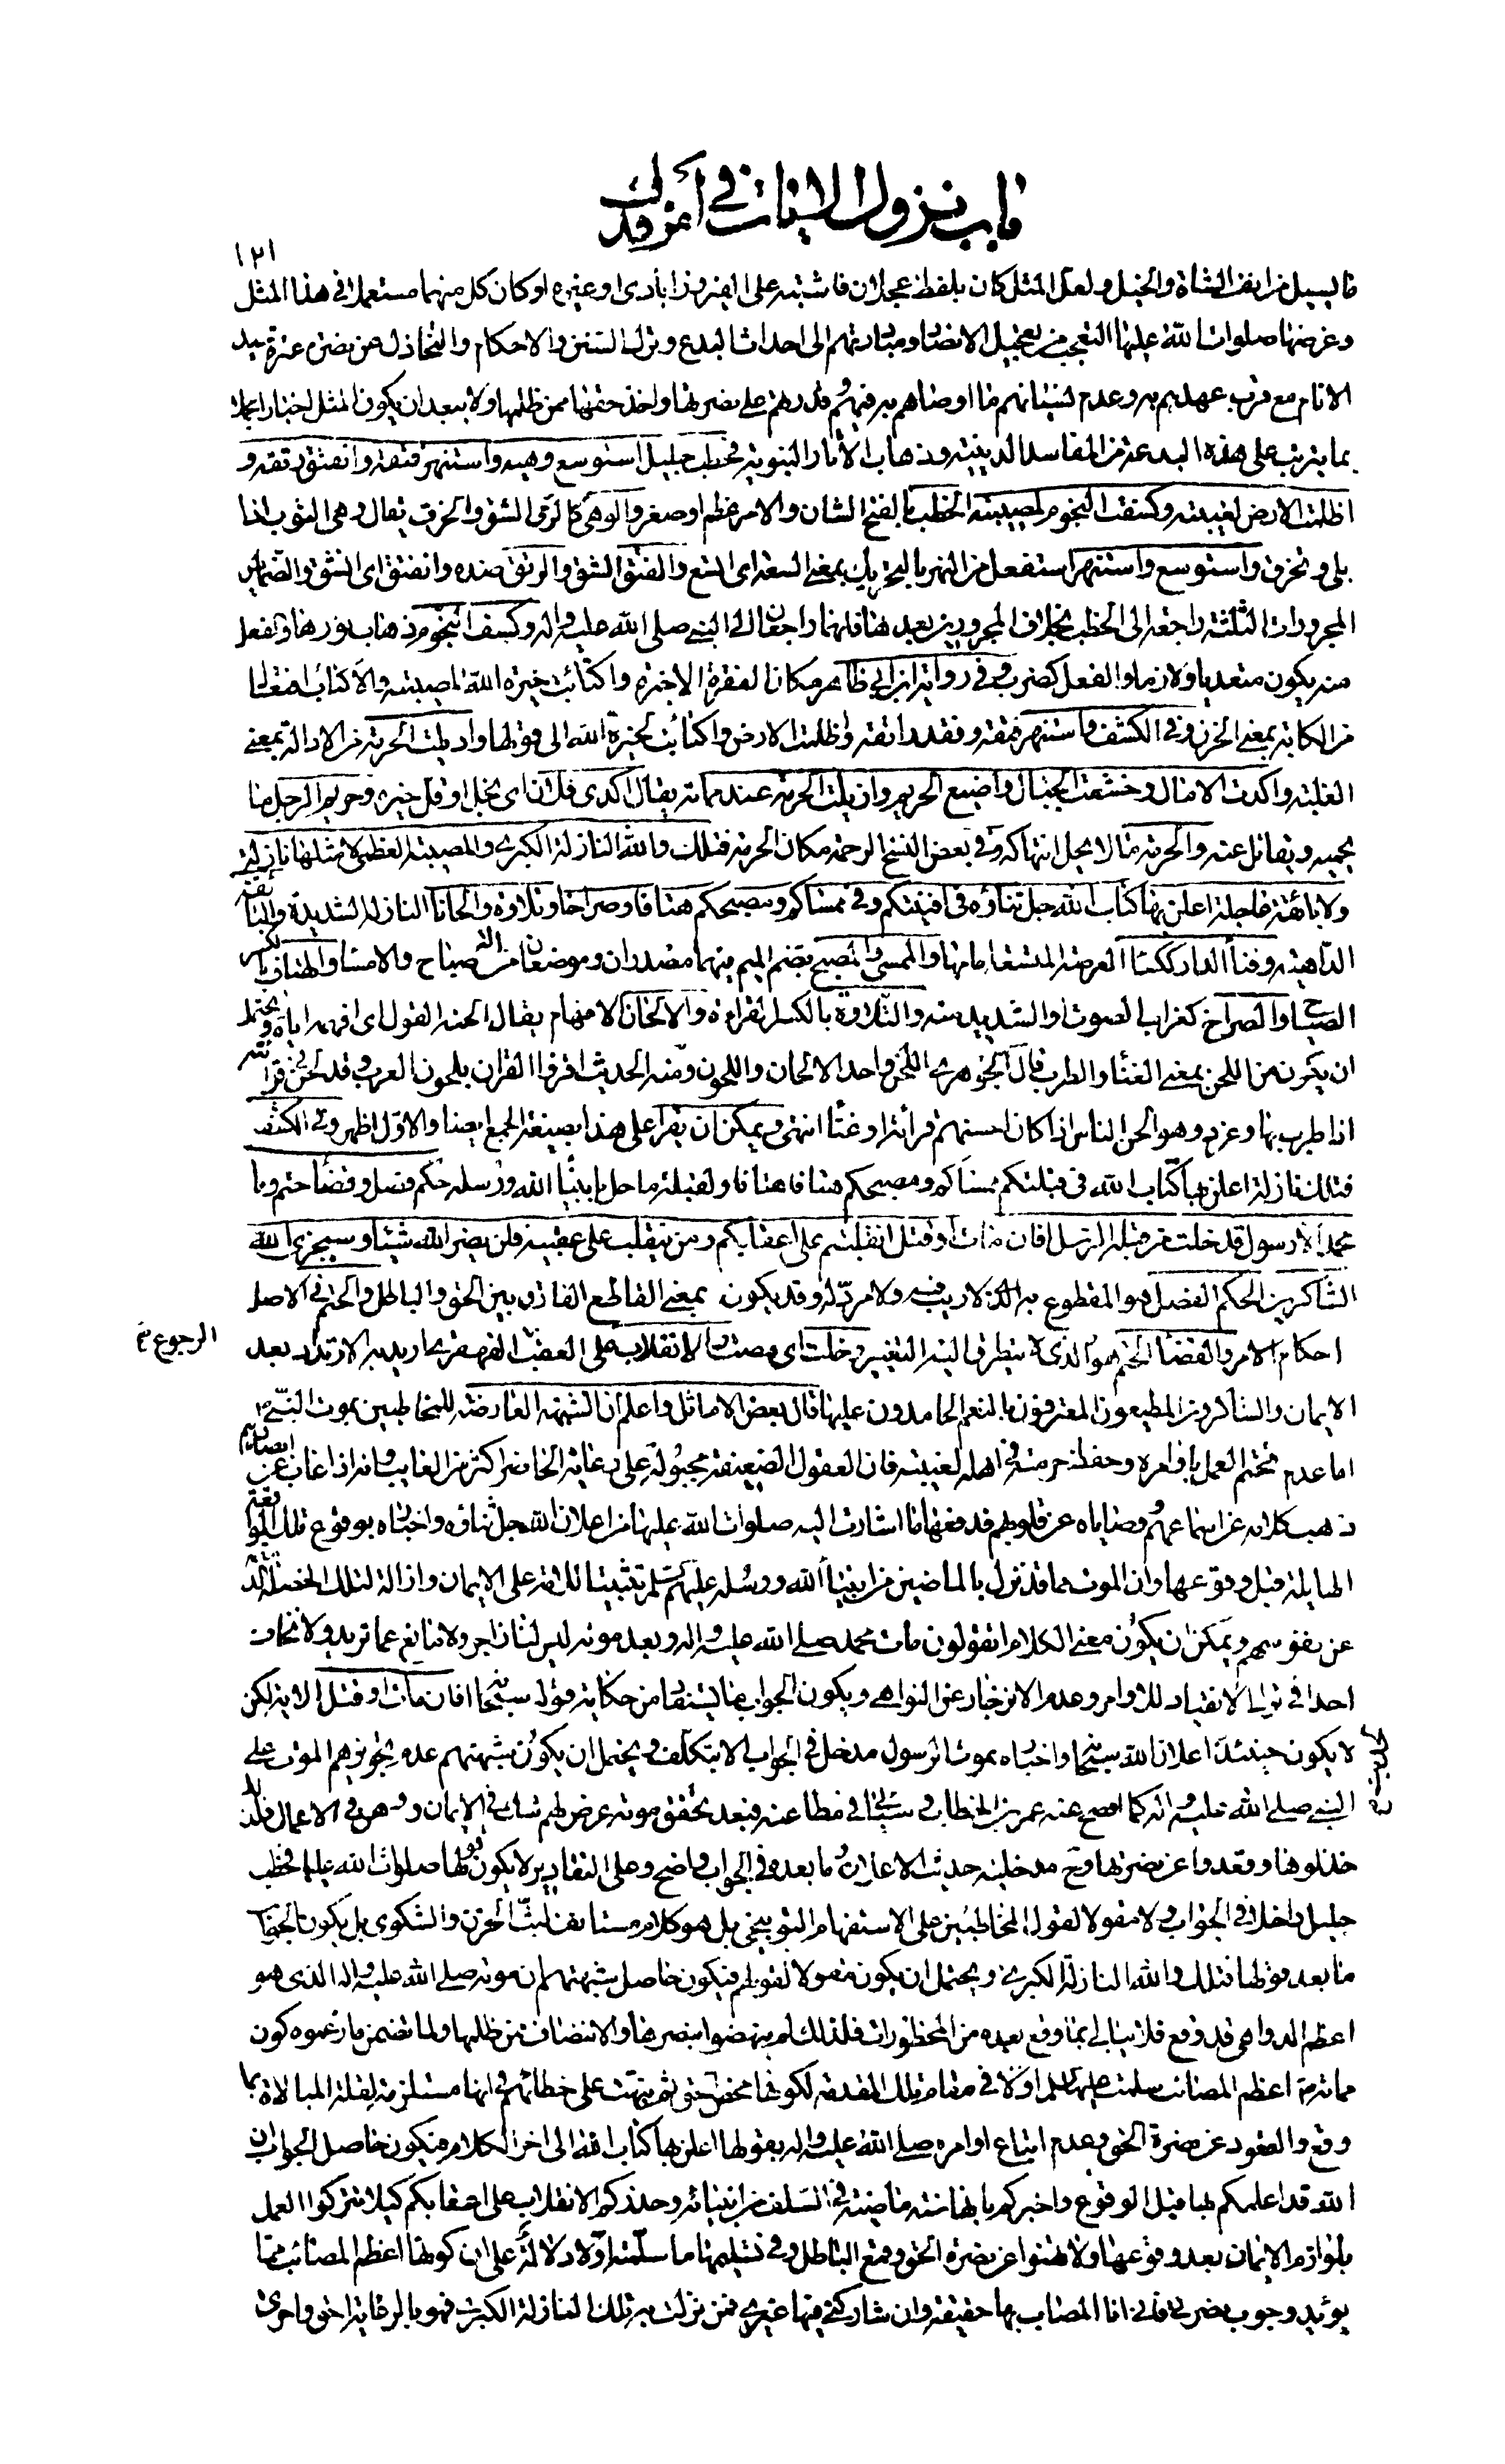 باب نزول الآيات في أمر فدك
١٢١
ما يسيل من انف الشاة والخيل ولعل المثل كان بلفظ عجلان فاشتبه على الفيروزآبادى او غيره او كان كل منهما مستعملا في هذا المثل
وغرضها صلوات الله عليها التعجب من تعجيل الانصار ومبادرتهم الى احداث البدع وترك السنن والاحكام والتخاذل عن نصرة عترة سيد
الانام مع قرب عهدهم به وعدم نسيانهم ما اوصاهم به فيهم وقدرتهم على نصرتها واخذ حقها ممن ظلمها ولا يبعد ان يكون المثل اخبارا مجملا
بما يترتب على هذه البدعة من المفاسد الدينية وذهاب الآثار النبوية فخطب جليل استوسع وهيه واستنهر فتقه وانفتق رتقه و
اظلمت الارض لغيبته وكسفت النجوم لمصيبته الخطب بالفتح الشان والامر عظم او صغر والوهى كالرمى الشق والخرق يقال وهى الثوب اذا
بلى وتخرق واستوسع واستنهر استفعل من النهر بالتحريك بمعنى السعة اى اتسع والفتق الشق والرتق ضده وانفتق اى انشق والضماير
المجرورات الثلثة راجعة الى الخطب بخلاف المجرورين بعدها فانهما راجعان الى النبي صلى الله عليه واله وكسف النجوم ذهاب نورها والفعل
منه يكون متعديا ولازما والفعل كضرب وفي رواية ابن ابي طاهر مكان الفقرة الاخيرة واكتأبت خيرة الله لمصيبته والاكتئاب افتعال
من الكآبة بمعنى الحزن وفي الكشف واستنهر فتقه وفقد راتقه واظلمت الارض واكتأبت لخيرة الله الى قولها واديلت الحرمة من الادالة بمعنى
الغلبة واكدت الامال وخشعت الجبال واضيع الحريم وازيلت الحرمة عند مماته يقال اكدى فلان اى بخل او قل خيره وحريم الرجل ما
يحميه ويقاتل عنه والحرمة ما لا يحل انتهاكه وفي بعض النسخ الرحمة مكان الحرمة فتلك والله النازلة الكبرى والمصيبة العظمى لا مثلها نازلة
ولا بائقة عاجلة اعلن بها كتاب الله جل ثناؤه في افنيتكم وفي ممساكم ومصبحكم هتافا وصراخا وتلاوة والحانا النازلة الشديدة والبائقة
الداهية وفناء الدار ككساء العرصة المتسعة امامها والممسى والمصبح بضم الميم فيهما مصدران وموضعان من الاصباح والامساء والهتاف بالكسر
الصياح والصراخ كغراب الصوت او الشديد منه والتلاوة بالكسر القراءة والالحان الافهام يقال الحنه القول اى افهمه اياه ويحتمل
ان يكون من اللحن بمعنى الغناء والطرب قال الجوهرى اللحن واحد الالحان واللحون ومنه الحديث اقرؤا القران بلحون العرب وقد لحن في قراءته
اذا طرب بها وغرد وهو الحن الناس اذا كان احسنهم قراءة او غناء انتهى ويمكن ان يقرأ على هذا بصيغة الجمع ايضا والاول اظهر وفي الكشف
فتلك نازلة اعلن بها كتاب الله في قبلتكم ممساكم ومصبحكم هتافا هتافا ولقبله ما حل بانبياء الله ورسله حكم فصل وقضاء حتم وما
محمد الا رسول قد خلت من قبله الرسل افان مات او قتل انقلبتم على اعقابكم ومن ينقلب على عقبيه فلن يضر الله شيئا وسيجزى الله
الشاكرين الحكم الفصل هو المقطوع به الذى لا ريب فيه ولا مرد له وقد يكون بمعنى القاطع الفارق بين الحق والباطل والحتم في الاصل
احكام الامر والقضاء الحتم هو الذى لا يتطرق اليه التغيير وخلت اى مضت والانقلاب على العقب الرجوع القهقرى اريد به الارتداد بعد
الايمان والشاكرون المطيعون المعترفون بالنعم الحامدون عليها قال بعض الاماثل واعلم ان الشبهة العارضة للمخاطبين بموت النبي ص
اما عدم تحتم العمل باوامره وحفظ حرمته في اهله لغيبته فان العقول الضعيفة مجبولة على رعاية الحاضر اكثر من الغايب وانه اذا غاب عن ابصارهم
ذهب كلامه عن اسماعهم ووصاياه عن قلوبهم فدفعها ما اشارت اليه صلوات الله عليها من اعلان الله جل ثناؤه واخباره بوقوع تلك الواقعة
الهايلة قبل وقوعها وان الموت مما قد نزل بالماضين من انبياء الله ورسله عليهم السلام تثبيتا للامة على الايمان وازالة لتلك الخصلة الذميمة
عن نفوسهم ويمكن ان يكون معنى الكلام اتقولون مات محمد صلى الله عليه واله وبعد موته ليس لنا زاجر ولا مانع عما نريد ولا نخاف
احدا في ترك الانقياد للاوامر وعدم الانزجار عن النواهى ويكون الجواب ما يستفاد من حكاية قوله سبحانه افان مات او قتل الاية لكن
لا يكون حينئذ لاعلان الله سبحانه واخباره بموت الرسول مدخل في الجواب الا بتكلف ويحتمل ان يكون شبهتهم عدم تجويزهم الموت على
النبي صلى الله عليه واله كما افصح عنه عمر بن الخطاب وسياتى في مطاعنه فبعد تحقق موته عرض لهم شك في الايمان ووهن في الاعمال فلذلك
خذلوها وقعدوا عن نصرتها وح مدخلية حديث الاعلان وما بعده في الجواب واضح وعلى التقادير لا يكون قولها صلوات الله عليها فخطب
جليل داخلا في الجواب ولا مقولا لقول المخاطبين على الاستفهام التوبيخى بل هو كلام مستانف لبث الحزن والشكوى بل يكون الجواب
ما بعد قولها فتلك والله النازلة الكبرى ويحتمل ان يكون مقولا لقولهم فيكون حاصل شبهتهم ان موته صلى الله عليه واله الذى هو
اعظم الدواهى قد وقع فلا يبالى بما وقع بعده من المحظورات فلذلك لم ينهضوا بنصرها والانتصاف ممن ظلمها ولما تضمن ما زعموه كون
مماته ص اعظم المصائب سلمت عليها السلام اولا في مقام تلك المقدمة لكونها محض الحق ثم نبهت على خطائهم في انها مستلزمة لقلة المبالاة بما
وقع والقعود عن نصرة الحق وعدم اتباع اوامره صلى الله عليه واله بقولها اعلن بها كتاب الله الى اخر الكلام فيكون حاصل الجواب ان
الله قد اعلمكم بها قبل الوقوع واخبركم بانها سنة ماضية في السلف من انبيائه وحذركم الانقلاب على اعقابكم كيلا تتركوا العمل
بلوازم الايمان بعد وقوعها ولا تهنوا عن نصرة الحق وقمع الباطل وفي تسليمها ما سلمته اولا دلالة على ان كونها اعظم المصائب مما
يؤيد وجوب نصرتى فانى انا المصاب بها حقيقة وان شاركنى فيها غيرى فمن نزلت به تلك النازلة الكبرى فهو بالرعاية احق واحرى